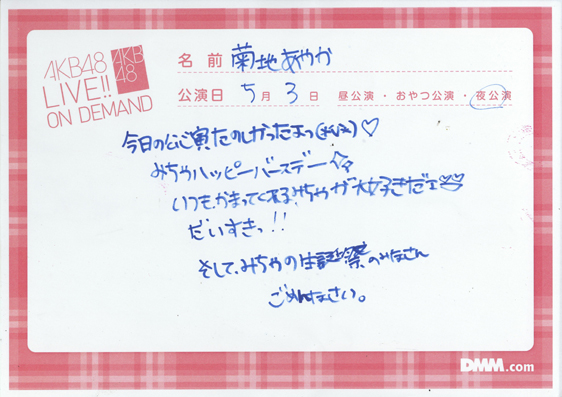 AKB48
LIVE!!
ON DEMAND
AKB
48
名前 菊地あやか
公演日 5月3日 昼公演・おやつ公演・夜公演
今日の公演たのしかったよっ
みちゃハッピーバースデー☆
いつもかまってくれるみちゃが大好きだ
だいすきっ!!
そして、みちゃの生誕祭のみなさん
ごめんなさい。
DMM.com